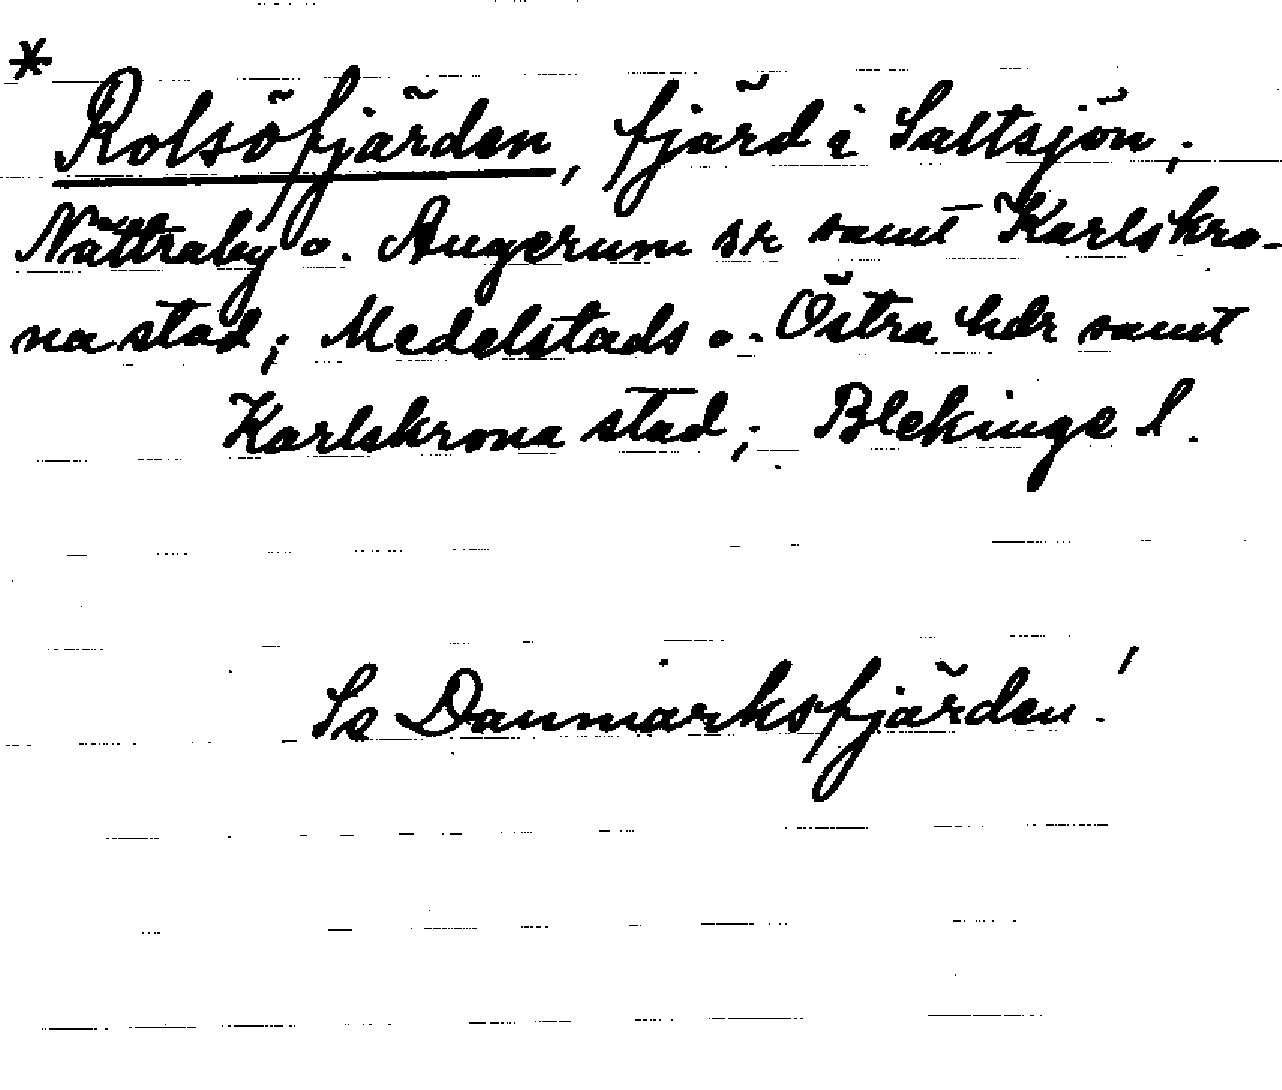 * Rolsöfjärden, fjärd i Saltsjön;
Nättraby o. Augerum sr samt Karlskro-
na stad; Medelstads o. Östra hdr samt
Karlskrona stad; Blekinge l.
Se Danmarksfjärden!